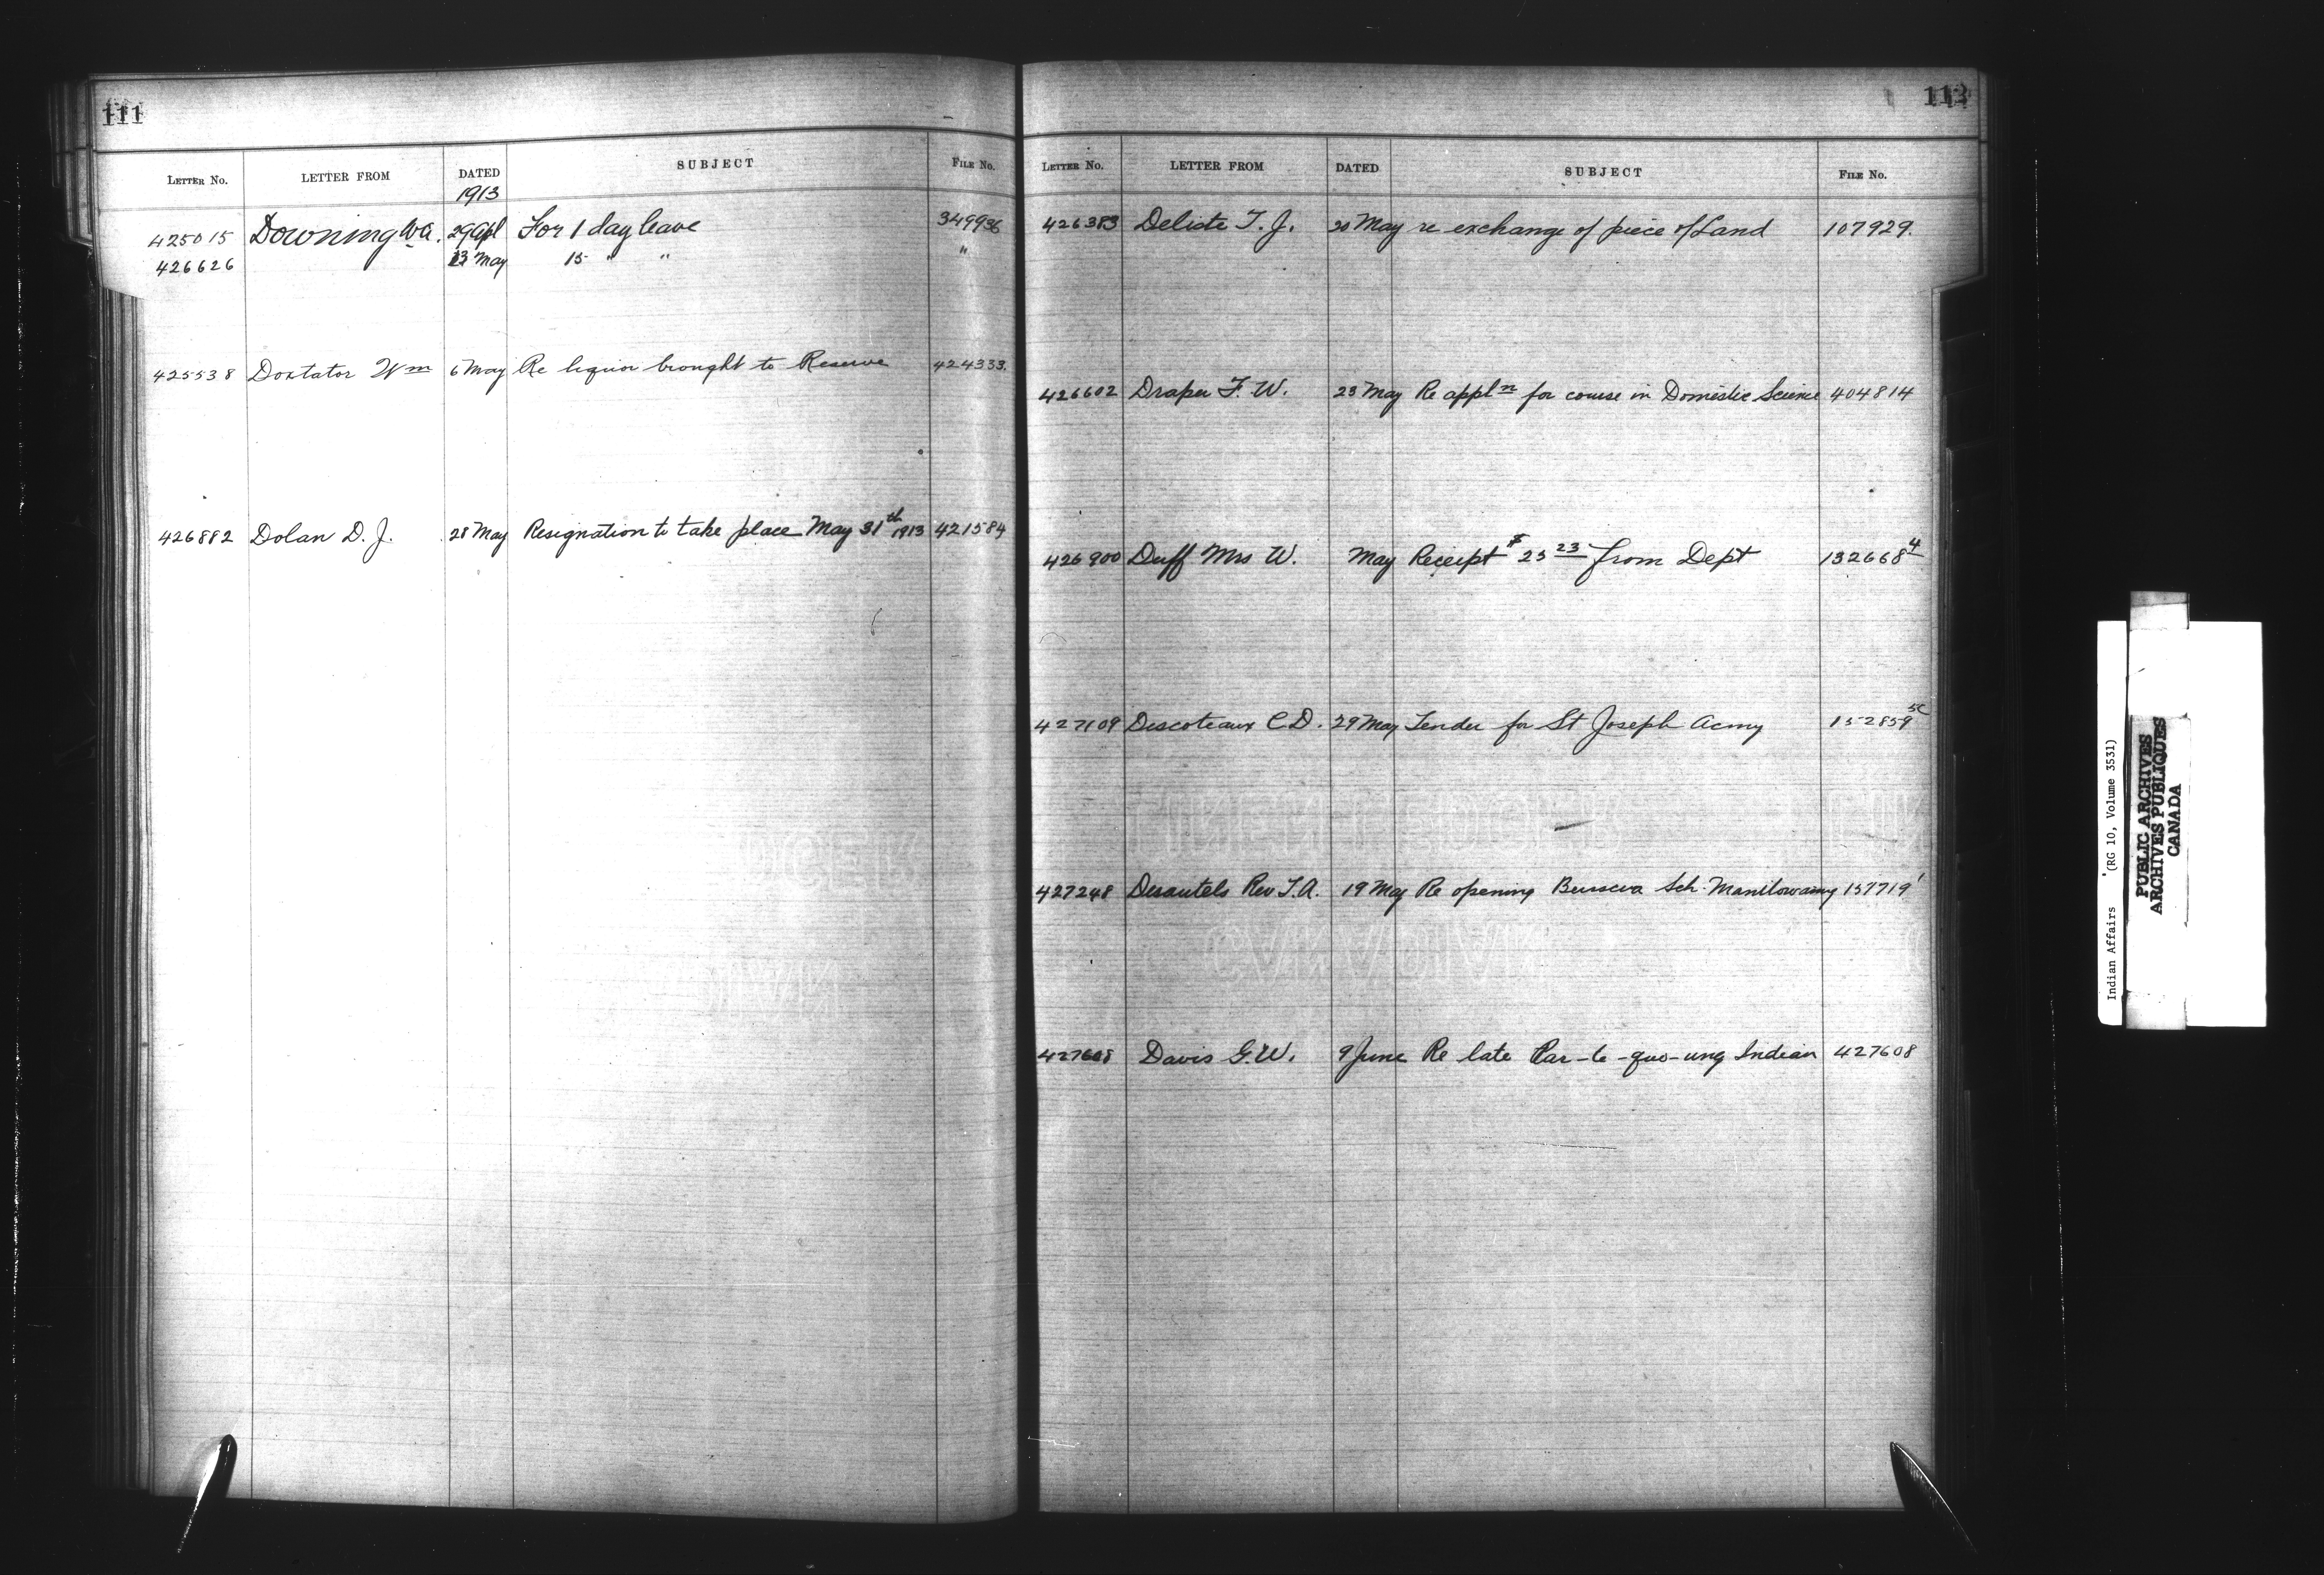 111
LETTER No. LETTER FROM DATED SUBJECT FILE No.
1913
425015 Downing W.A. 29 Apl For 1 day leave 349936
426626 23 May 15 " " "
425538 Doxtator Wm 6 May Re liquor brought to Reserve 424333
426882 Dolan D. J. 28 May Resignation to take place May 31th 1913 421584
LETTER No. LETTER FROM DATED SUBJECT FILE No.
426383 Delisle T. J. 20 May re exchange of piece of Land 107929.
426602 Draper F. W. 23 May Re appln for course in Domestic Science 404814
426900 Duff Mrs W. May Receipt $ 25 23 from Dept 132668 4
427109 Descoteaux C.D. 29 May Tender for St Joseph Acmy 152859 5C
427248 Desautels Rev T.A. 19 May Re opening Sch. 157719 1
427608 Davis G. W. 9 June Re late Indian 427608
Indian Affairs (RG 10, Volume 3531)
PUBLIC ARCHIVES
ARCHIVES PUBLIQUES
CANADA